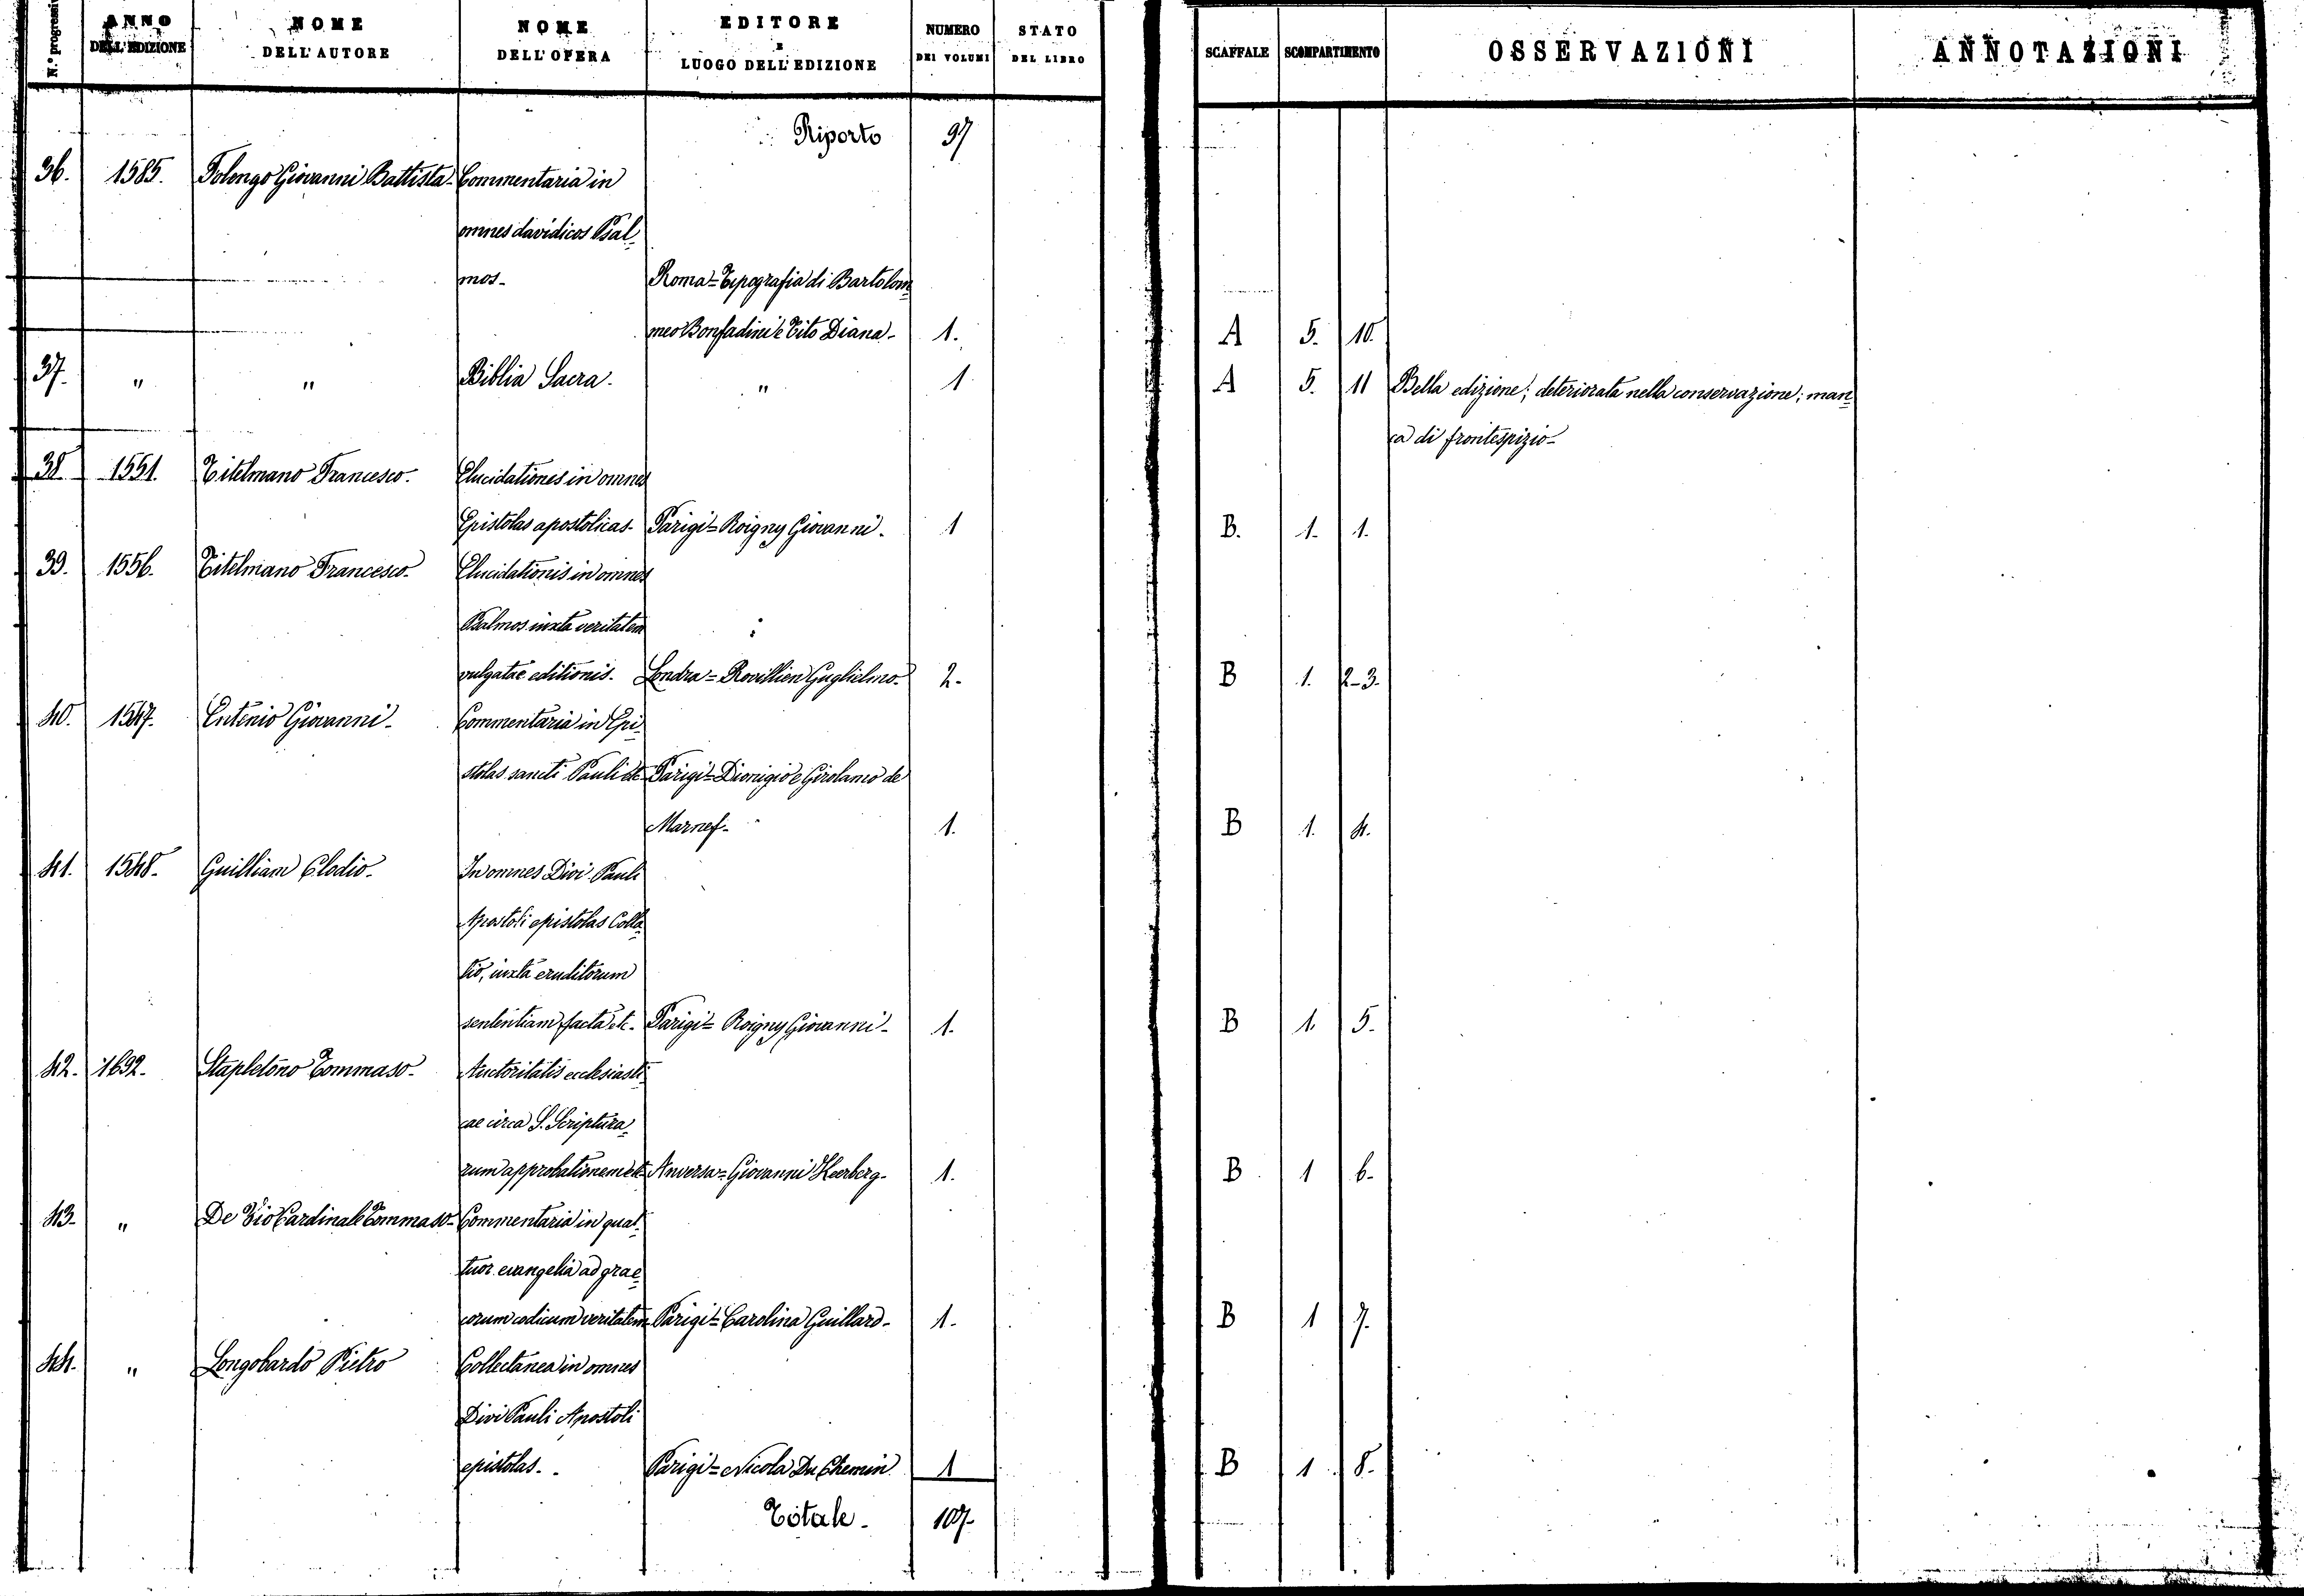 N.° progressivo
ANNO DELL'EDIZIONE
NOME DELL'AUTORE
NOME DELL'OPERA
EDITORE E LUOGO DELL'EDIZIONE
NUMERO DEI VOLUMI
STATO DEL LIBRO
SCAFFALE
SCOMPARTIMENTO
OSSERVAZIONI
ANNOTAZIONI
Riporto 97
36. 1585. Folengo Giovanni Battista- Commentaria in
omnes davidicos Psal-
mos- Roma= Tipografia di Bartolom
meo Bonfadini e Tito Diana- 1. A 5. 10.
37. " " Biblia Sacra. " 1 A 5. 11 Bella edizione; deteriorata nella conservazione; man-
ca di frontespizio-
38. 1551. Titelmano Francesco. Elucidationes in omnes
Epistolas apostolicas- Parigi= Roigny Giovanni. 1 B. 1. 1.
39. 1556. Titelmano Francesco- Elucidationis in omnes
Psalmos iuxta veritatem
vulgatae editionis. Londra= Rovillien Guglielmo. 2. B 1. 2-3.
40. 1547. Entenio Giovanni- Commentaria in Epi-
stolas sancti Pauli etc Parigi= Dionigio e Girolamo de
Marnef- 1. B 1. 4.
41. 1548- Guilliam Clodio- In omnes Divi Pauli
Apostoli epistolas Colla-
tio, iuxta eruditorum
sententiam facta etc- Parigi= Roigny Giovanni- 1. B 1. 5.
42. 1692- Stapletono Tommaso- Auctoritatis ecclesiasti-
cae circa S. Scriptura-
rum approbationem etc- Anversa= Giovanni Keerberg- 1. B 1 6-
43- " De Vio Cardinale Tommaso- Commentaria in quat-
tuor evangelia ad grae-
corum codicum veritatem- Parigi= Carolina Guillard- 1- B 1 7.
44. " Longobardo Pietro Collectanea in omnes
Divi Pauli Apostoli
epistolas- Parigi= Nicola Du Chemin 1 B 1 8.
Totale- 107-